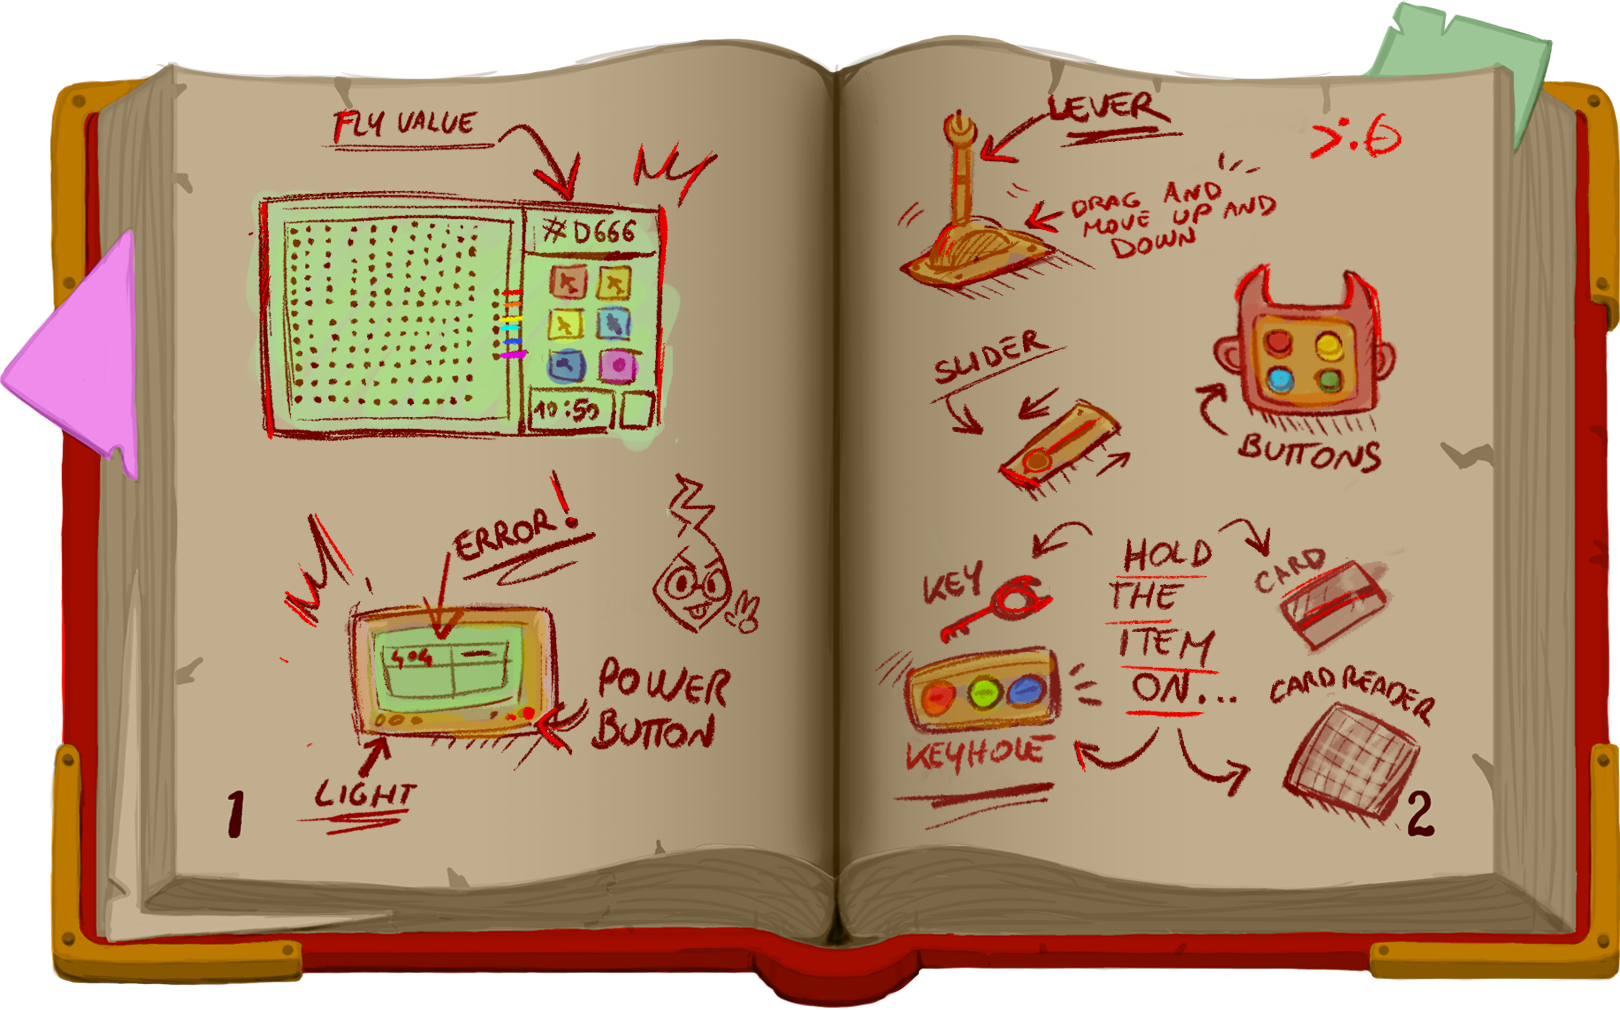 FLY VALUE
#D666
10:50
ERROR!
404
POWER
BUTTON
LIGHT
1
LEVER
>:6
DRAG AND
MOVE UP AND
DOWN
SLIDER
BUTTONS
HOLD
THE
ITEM
ON...
KEY
CARD
KEYHOLE
CARD READER
2